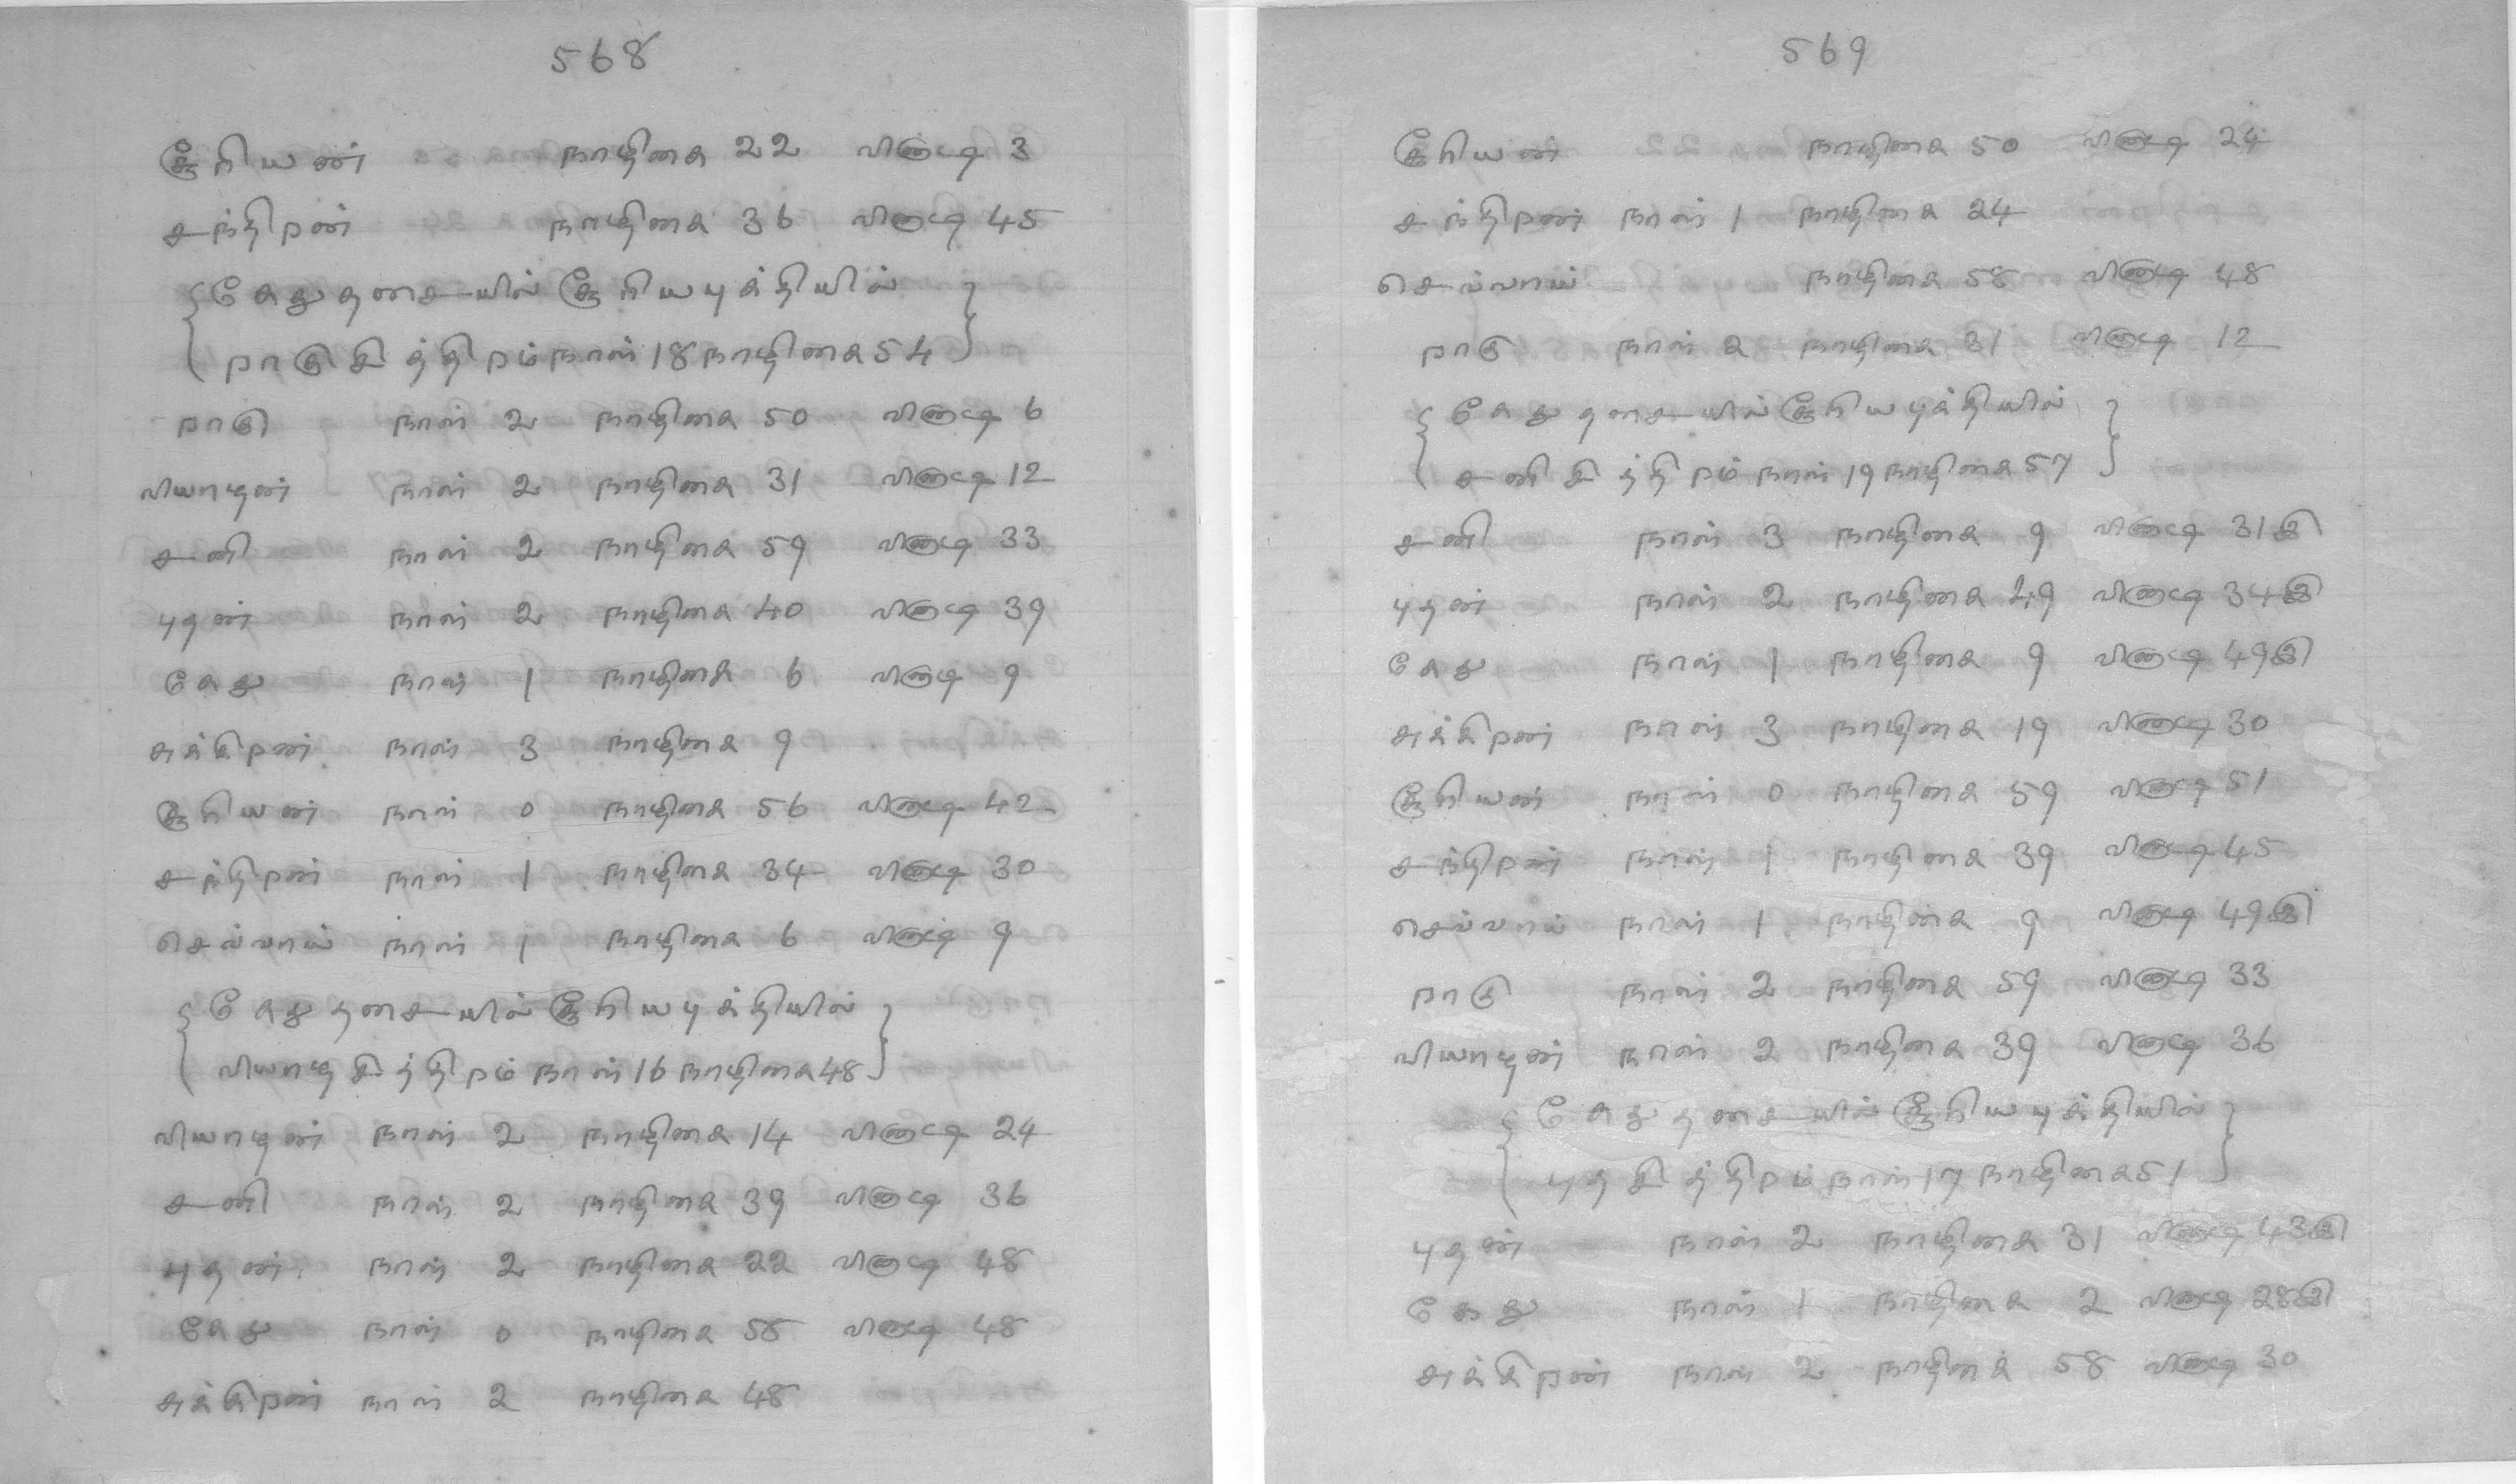 568
சூரியன் நாழிகை 22 விநாடி 3
சந்திரன் நாழிகை 36 விநாடி 45
{கேதுதசையில் சூரியபுக்தியில்
ராகுசித்திரம் நாள் 18 நாழிகை 54}
ராகு நாள் 2 நாழிகை 50 விநாடி 6
வியாழன் நாள் 2 நாழிகை 31 விநாடி 12
சனி நாள் 2 நாழிகை 59 விநாடி 33
புதன் நாள் 2 நாழிகை 40 விநாடி 39
கேது நாள் 1 நாழிகை 6 விநாடி 9
சுக்கிரன் நாள் 3 நாழிகை 9
சூரியன் நாள் 0 நாழிகை 56 விநாடி 42
சந்திரன் நாள் 1 நாழிகை 34 விநாடி 30
செவ்வாய் நாள் 1 நாழிகை 6 விநாடி 9
{கேதுதசையில் சூரியபுக்தியில்
வியாழசித்திரம் நாள் 16 நாழிகை 48}
வியாழன் நாள் 2 நாழிகை 14 விநாடி 24
சனி நாள் 2 நாழிகை 39 விநாடி 36
புதன் நாள் 2 நாழிகை 22 விநாடி 48
கேது நாள் 0 நாழிகை 58 விநாடி 48
சுக்கிரன் நாள் 2 நாழிகை 48
569
சூரியன் நாழிகை 50 விநாடி 24
சந்திரன் நாள் 1 நாழிகை 24
செவ்வாய் நாழிகை 58 விநாடி 48
ராகு நாள் 2 நாழிகை 31 விநாடி 12
{கேதுதசையில் சூரியபுக்தியில்
சனிசித்திரம் நாள் 19 நாழிகை 57}
சனி நாள் 3 நாழிகை 9 விநாடி 31இ
புதன் நாள் 2 நாழிகை 49 விநாடி 34இ
கேது நாள் 1 நாழிகை 9 விநாடி 49இ
சுக்கிரன் நாள் 3 நாழிகை 19 விநாடி 30
சூரியன் நாள் 0 நாழிகை 59 விநாடி 51
சந்திரன் நாள் 1 நாழிகை 39 விநாடி 45
செவ்வாய் நாள் 1 நாழிகை 9 விநாடி 49இ
ராகு நாள் 2 நாழிகை 59 விநாடி 33
வியாழன் நாள் 2 நாழிகை 39 விநாடி 36
{கேதுதசையில் சூரியபுக்தியில்
புதசித்திரம் நாள் 17 நாழிகை 51}
புதன் நாள் 2 நாழிகை 31 விநாடி 43இ
கேது நாள் 1 நாழிகை 2 விநாடி 28இ
சுக்கிரன் நாள் 2 நாழிகை 58 விநாடி 30